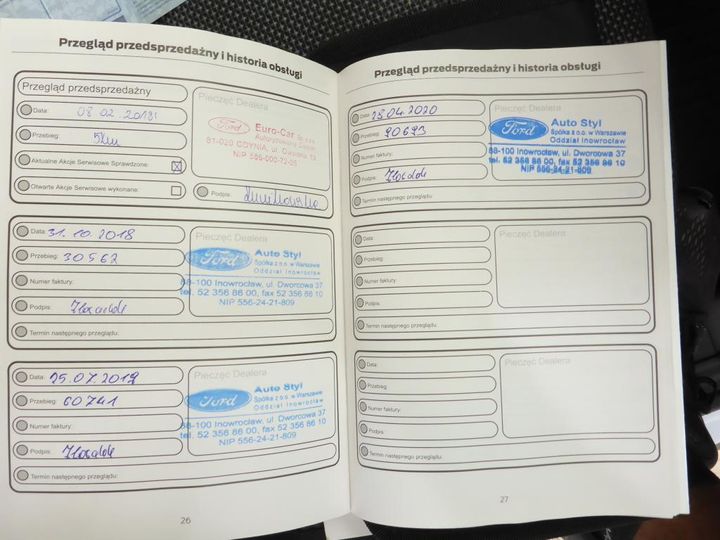 Przegląd przedsprzedażny i historia obsługi
Przegląd przedsprzedażny
Data: 08 02. 2018
Przebieg: 5km
Aktualne Akcje Serwisowe Sprawdzone: X
Otwarte Akcje Serwisowe wykonane:
Pieczęć Dealera
Ford
Euro-Car Sp. z o.o.
81-020 GDYNIA
Podpis:
Data: 31. 10. 2018
Przebieg: 30562
Numer faktury:
Podpis:
Termin następnego przeglądu:
Pieczęć Dealera
Ford
Auto Styl
Spółka z o.o. w Warszawie
Oddział Inowrocław
88-100 Inowrocław, ul. Dworcowa 37
tel. 52 356 86 00, fax 52 356 86 10
NIP 556-24-21-809
Data: 25.07.2019
Przebieg: 60741
Numer faktury:
Podpis:
Termin następnego przeglądu:
Pieczęć Dealera
Ford
Auto Styl
Spółka z o.o. w Warszawie
Oddział Inowrocław
88-100 Inowrocław, ul. Dworcowa 37
tel. 52 356 86 00, fax 52 356 86 10
NIP 556-24-21-809
26
Przegląd przedsprzedażny i historia obsługi
Data: 28.04.2020
Przebieg: 90693
Numer faktury:
Podpis:
Termin następnego przeglądu:
Pieczęć Dealera
Ford
Auto Styl
Spółka z o.o. w Warszawie
Oddział Inowrocław
88-100 Inowrocław, ul. Dworcowa 37
tel. 52 356 86 00, fax 52 356 86 10
NIP 556-24-21-809
Data:
Przebieg:
Numer faktury:
Podpis:
Termin następnego przeglądu:
Pieczęć Dealera
Data:
Przebieg:
Numer faktury:
Podpis:
Termin następnego przeglądu:
Pieczęć Dealera
27